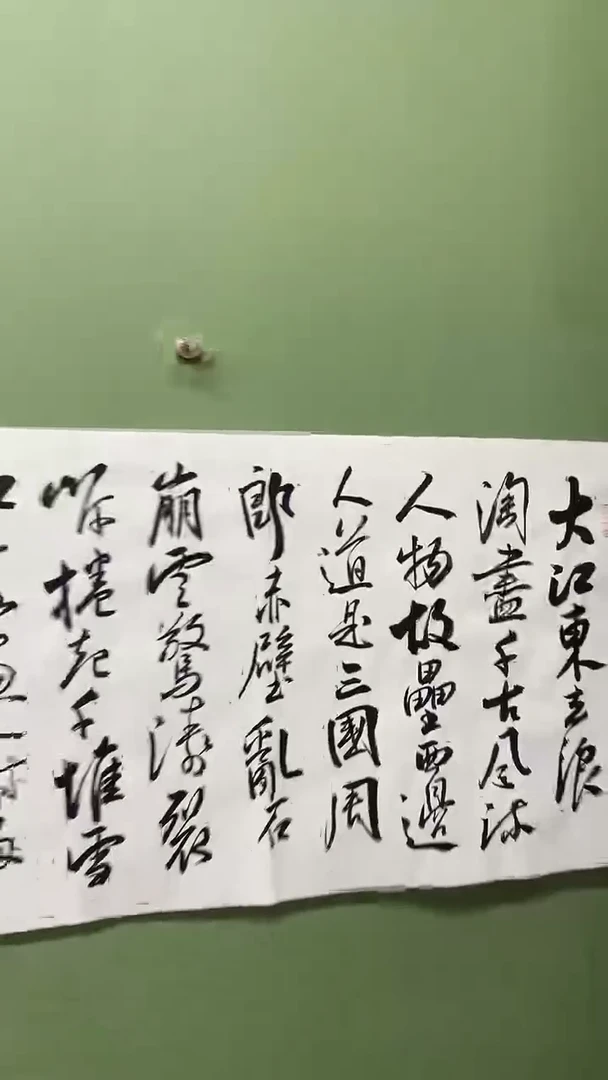 大江東去浪
淘盡千古風流
人物故壘西邊
人道是三國周
郎赤壁亂石
崩雲驚濤裂
岸捲起千堆雪